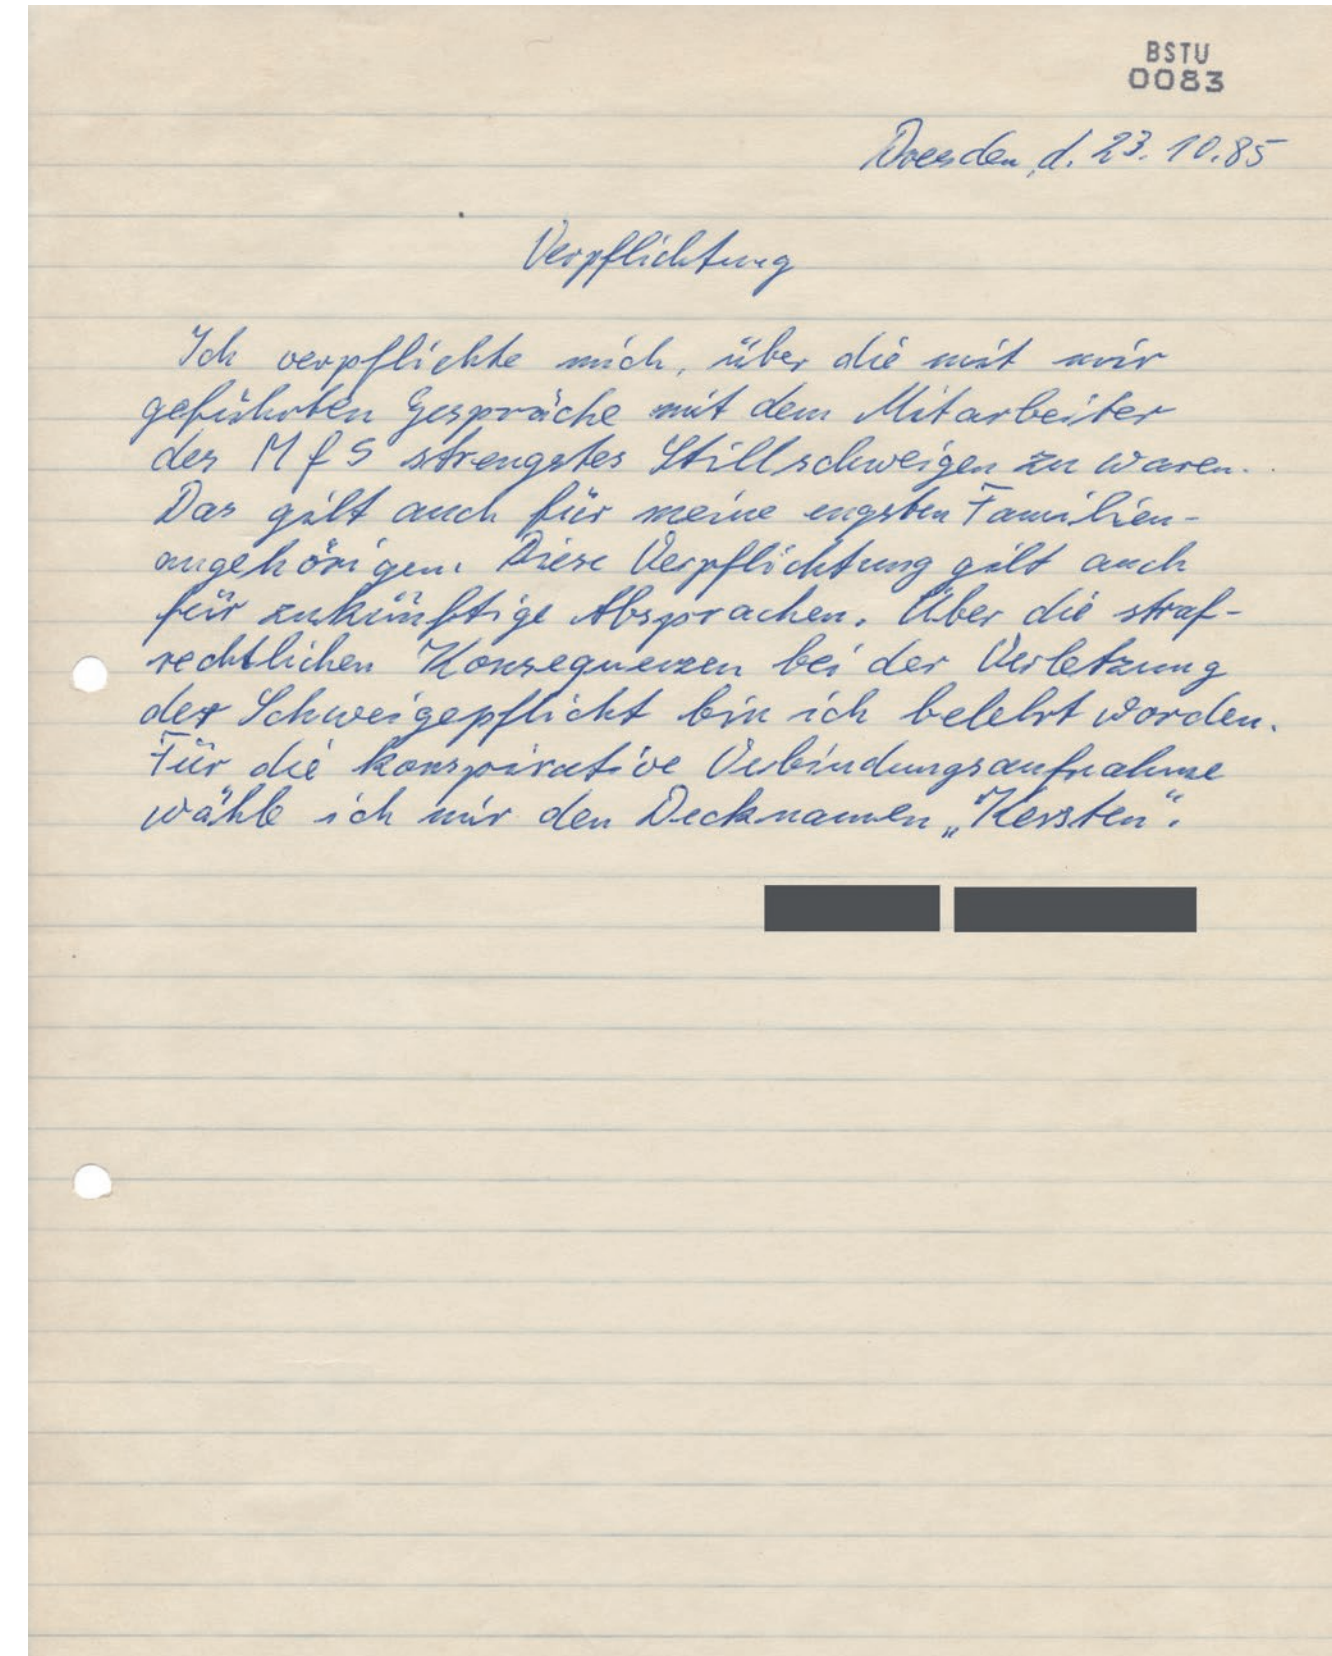 BSTU
0083
Dresden, d. 23. 10. 85
Verpflichtung
Ich verpflichte mich, über die mit mir
geführten Gespräche mit dem Mitarbeiter
des MfS strengstes Stillschweigen zu waren.
Das gilt auch für meine engsten Familien-
angehörigen. Diese Verpflichtung gilt auch
für zukünftige Absprachen. Über die straf-
rechtlichen Konsequenzen bei der Verletzung
der Schweigepflicht bin ich belehrt worden.
Für die konspirative Verbindungsaufnahme
wähle ich mir den Decknamen „Kersten“.